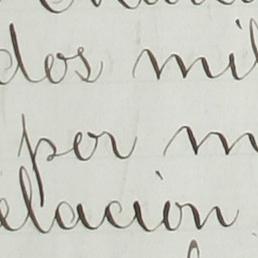 dos mil
por m
elación